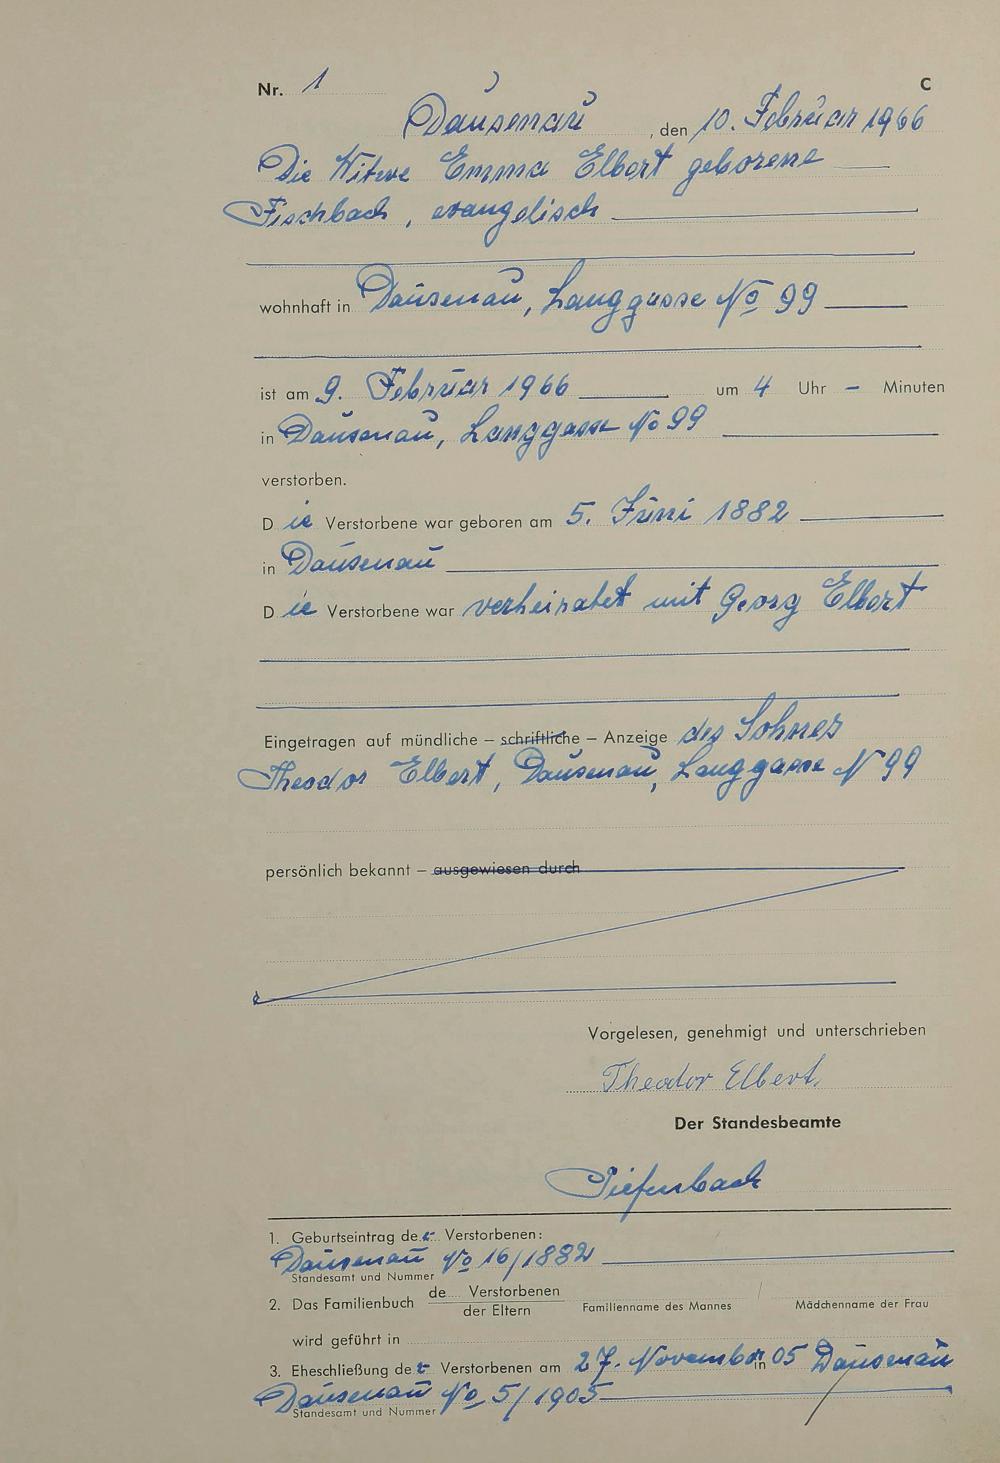 Nr. 1 C
Dausenau, den 10. Februar 1966
Die Witwe Emma Elbert geborene
Fischbach, evangelisch
wohnhaft in Dausenau, Langgasse No 99
ist am 9. Februar 1966 um 4 Uhr – Minuten
in Dausenau, Langgasse No 99
verstorben.
Die Verstorbene war geboren am 5. Juni 1882
in Dausenau
Die Verstorbene war verheiratet mit Georg Elbert
Eingetragen auf mündliche – schriftliche – Anzeige des Sohnes
Theodor Elbert, Dausenau, Langgasse N 99
persönlich bekannt – ausgewiesen durch
Vorgelesen, genehmigt und unterschrieben
Theodor Elbert.
Der Standesbeamte
Tiefenbach
1. Geburtseintrag der Verstorbenen:
Dausenau No 16/1882
Standesamt und Nummer
2. Das Familienbuch de.... Verstorbenen
der Eltern Familienname des Mannes Mädchenname der Frau
wird geführt in
3. Eheschließung der Verstorbenen am 27. November 05 in Dausenau
Dausenau No 5/1905
Standesamt und Nummer